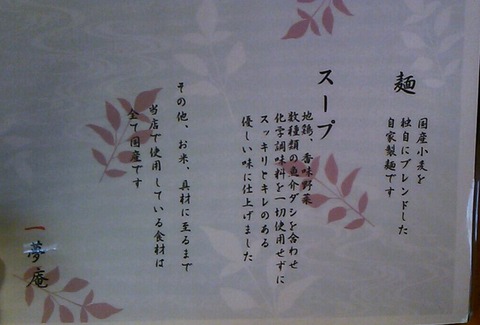 麺
国産小麦を
独自にブレンドした
自家製麺です
スープ
地鶏、香味野菜
数種類の魚介ダシを合わせ
化学調味料を一切使用せずに
スッキリとキレのある
優しい味に仕上げました
その他、お米、具材に至るまで
当店で使用している食材は
全て国産です
一夢庵